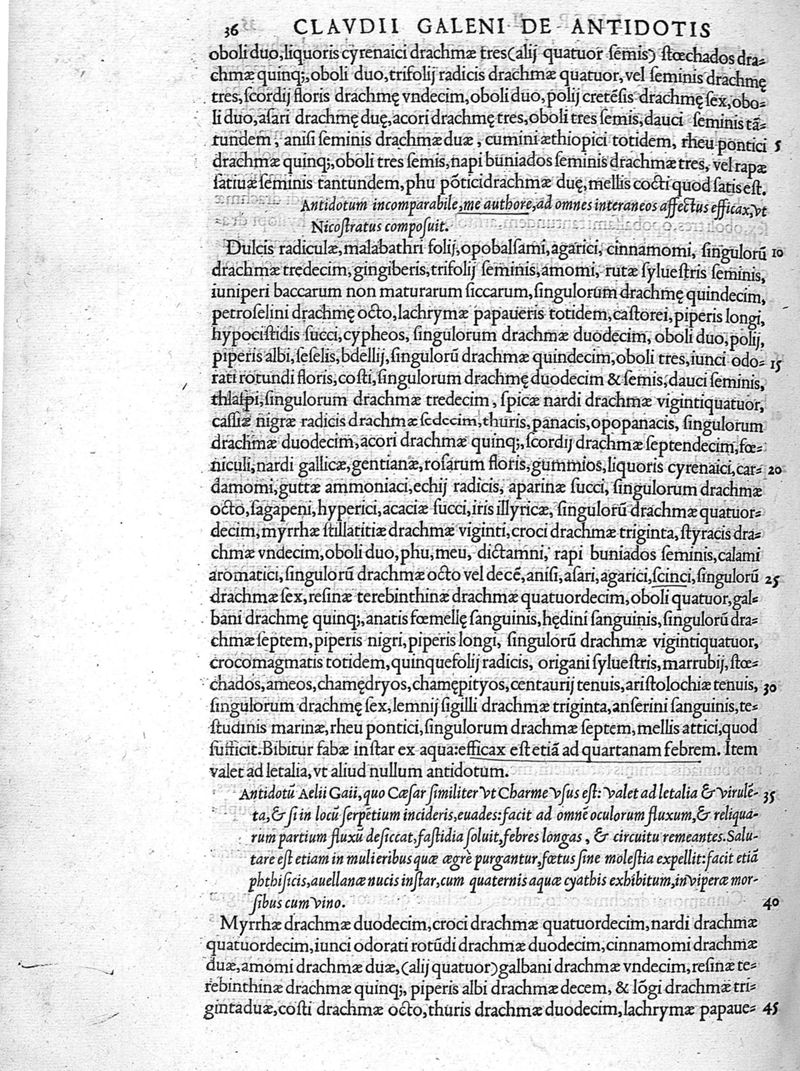 36 CLAVDII GALENI DE ANTIDOTIS
oboli duo,liquoris cyrenaici drachmæ tres(alij quatuor ſemis) ſtœchados dra=
chmæ quinq;,oboli duo,trifolij radicis drachmæ quatuor,vel ſeminis drachmę
tres,ſcordij floris drachmę vndecim,oboli duo,polij cretēſis drachmę ſex,obo=
li duo,aſari drachmę duę,acori drachmę tres,oboli tres ſemis,dauci ſeminis tā=
tundem, aniſi ſeminis drachmæ duæ, cumini æthiopici totidem, rheu pontici 5
drachmæ quinq;,oboli tres ſemis,napi buniados ſeminis drachmæ tres, vel rapæ
ſatiuæ ſeminis tantundem,phu pōtici drachmæ duę,mellis cocti quod ſatis eſt.
Antidotum incomparabile,me authore,ad omnes interaneos affectus efficax,vt
Nicoſtratus compoſuit.
Dulcis radiculæ,malabathri folij,opobalſami,agarici, cinnamomi, ſingulorū 10
drachmæ tredecim,gingiberis,trifolij ſeminis,amomi, rutæ ſylueſtris ſeminis,
iuniperi baccarum non maturarum ſiccarum,ſingulorum drachmę quindecim,
petroſelini drachmę octo,lachrymæ papaueris totidem,caſtorei,piperis longi,
hypociſtidis ſucci,cypheos, ſingulorum drachmæ duodecim, oboli duo,polij,
piperis albi,ſeſelis,bdellij,ſingulorū drachmæ quindecim,oboli tres,iunci odo= 15
rati rotundi floris,coſti,ſingulorum drachmę duodecim & ſemis,dauci ſeminis,
thlaſpi,ſingulorum drachmæ tredecim, ſpicæ nardi drachmæ vigintiquatuor,
caſſiæ nigræ radicis drachmæ ſedecim,thuris,panacis,opopanacis, ſingulorum
drachmæ duodecim,acori drachmæ quinq;,ſcordij drachmæ ſeptendecim,fœ=
niculi,nardi gallicæ,gentianæ,roſarum floris,gummios,liquoris cyrenaici,car= 20
damomi,guttæ ammoniaci,echij radicis, aparinæ ſucci, ſingulorum drachmæ
octo,ſagapeni,hyperici,acaciæ ſucci,iris illyricæ, ſingulorū drachmæ quatuor=
decim,myrrhæ ſtillatitiæ drachmæ viginti,croci drachmæ triginta,ſtyracis dra=
chmæ vndecim,oboli duo,phu,meu, dictamni, rapi buniados ſeminis,calami
aromatici,ſingulorū drachmæ octo vel decē,aniſi,aſari,agarici,ſcinci,ſingulorū 25
drachmæ ſex,reſinæ terebinthinæ drachmæ quatuordecim,oboli quatuor,gal=
bani drachmę quinq;,anatis fœmellę ſanguinis,hędini ſanguinis,ſingulorū dra=
chmæ ſeptem,piperis nigri,piperis longi, ſingulorū drachmæ vigintiquatuor,
crocomagmatis totidem,quinquefolij radicis, origani ſylueſtris,marrubij,ſtœ=
chados,ameos,chamędryos,chamępityos,centaurij tenuis,ariſtolochiæ tenuis, 30
ſingulorum drachmę ſex,lemnij ſigilli drachmæ triginta,anſerini ſanguinis,te=
ſtudinis marinæ,rheu pontici,ſingulorum drachmæ ſeptem,mellis attici,quod
ſufficit.Bibitur fabæ inſtar ex aqua:efficax eſt etiā ad quartanam febrem. Item
valet ad letalia, vt aliud nullum antidotum.
Antidotū Aelii Gaii, quo Cæſar ſimiliter vt Charme vſus eſt: valet ad letalia & virulē- 35
ta,& ſi in locū ſerpētium incideris,euades:facit ad omnē oculorum fluxum,& reliqua-
rum partium fluxū deſiccat,faſtidia ſoluit,febres longas, & circuitu remeantes.Salu-
tare eſt etiam in mulieribus quæ ægrè purgantur,fœtus ſine moleſtia expellit:facit etiā
phthiſicis,auellanæ nucis inſtar,cum quaternis aquæ cyathis exhibitum,in viperæ mor-
ſibus cum vino. 40
Myrrhæ drachmæ duodecim,croci drachmæ quatuordecim, nardi drachmæ
quatuordecim,iunci odorati rotūdi drachmæ duodecim,cinnamomi drachmæ
duæ,amomi drachmæ duæ,(alij quatuor)galbani drachmæ vndecim,reſinæ te=
rebinthinæ drachmæ quinq;, piperis albi drachmæ decem, & lōgi drachmæ tri=
gintaduæ,coſti drachmæ octo,thuris drachmæ duodecim,lachrymæ papaue= 45